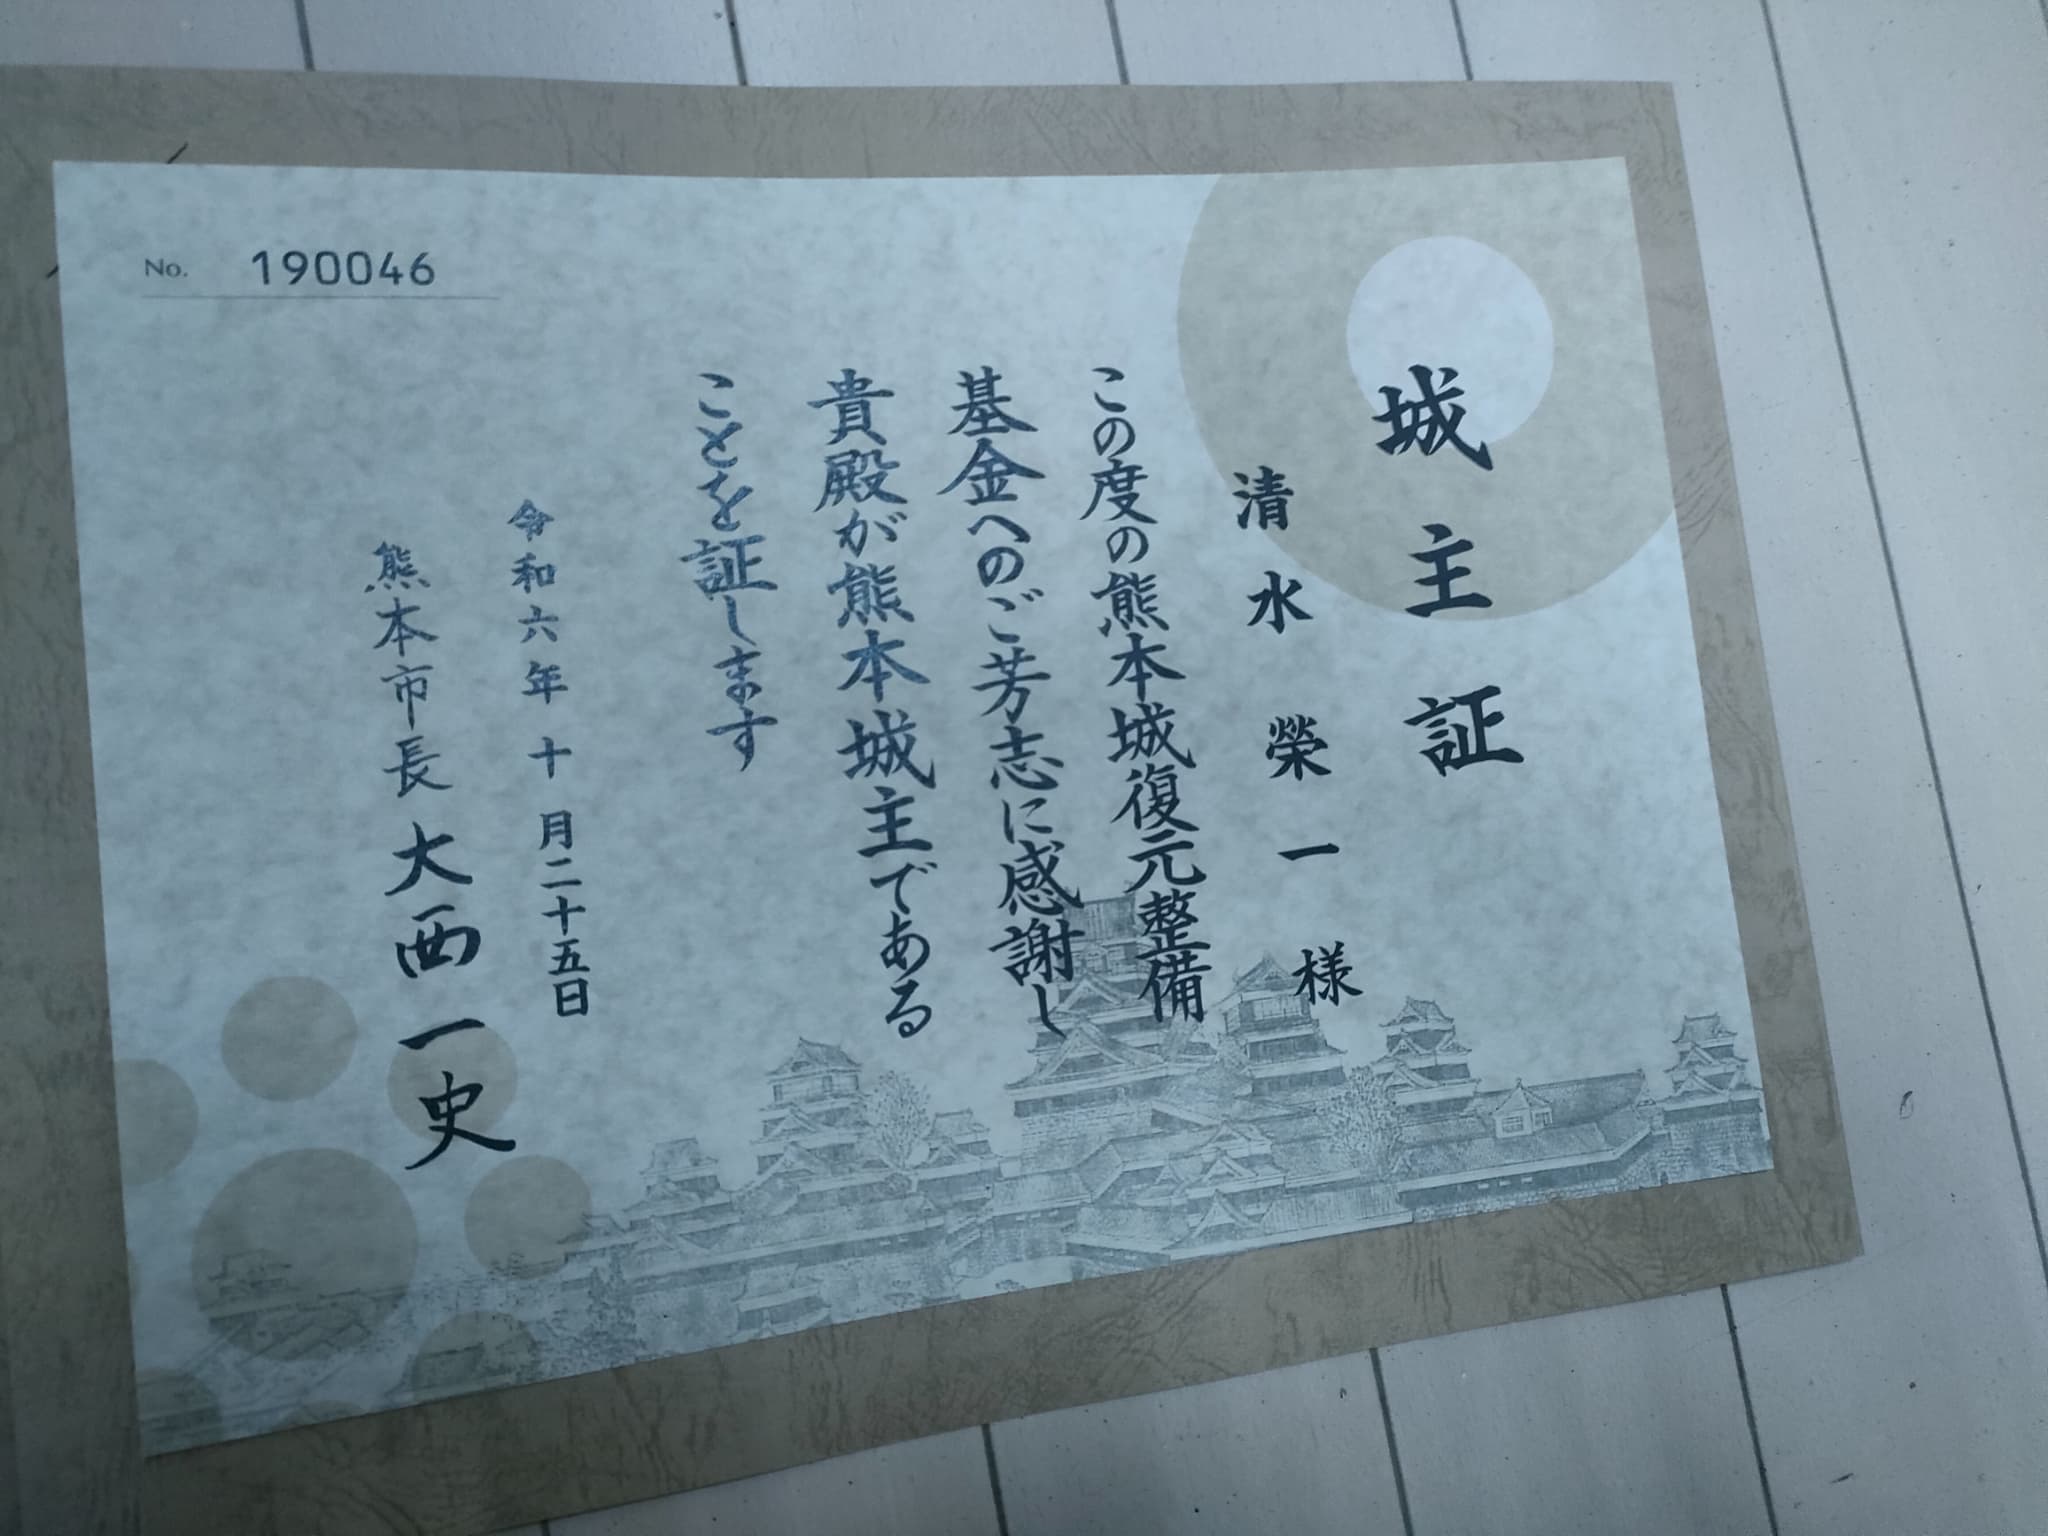 No. 190046
城主証
清水榮一様
この度の熊本城復元整備
基金へのご芳志に感謝し
貴殿が熊本城主である
ことを証します
令和六年十月二十五日
熊本市長 大西一史